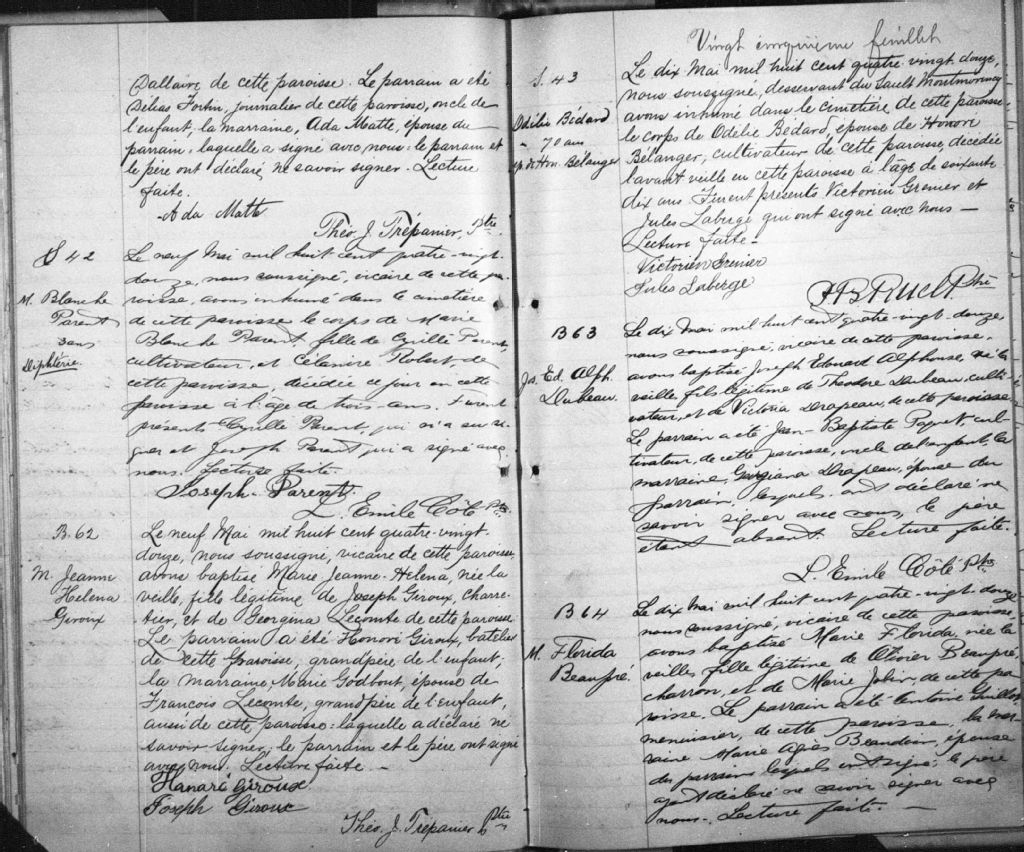 Dallaire de cette paroisse. Le parrain a été
Délias Fortin, journalier de cette paroisse, oncle de
l'enfant, la marraine, Ada Matte, épouse du
parrain, laquelle a signé avec nous: le parrain et
le père ont déclaré ne savoir signer. Lecture
faite.
Ada Matte
Théo. J. Trépanier, Ptre
S 42
M. Blanche
Parent
3 ans
Diphtérie.
Le neuf Mai mil huit cent quatre-vingt-
douze, nous soussigné, vicaire de cette pa-
roisse, avons inhumé dans le cimetière
de cette paroisse le corps de Marie
Blanche Parent, fille de Cyrille Parent,
cultivateur, et Célanire Robert, de
cette paroisse, décédée ce jour en cette
paroisse à l'âge de trois ans. Furent
présents Cyrille Parent, qui n'a su si-
gner et Joseph Parent qui a signé avec
nous. Lecture faite.
Joseph Parent
L. Emile Côté Ptre
B. 62
M. Jeanne
Helena
Giroux
Le neuf Mai mil huit cent quatre-vingt
douze, nous soussigné, vicaire de cette paroisse,
avons baptisé Marie Jeanne-Helena, née la
veille, fille légitime de Joseph Giroux, charre-
tier, et de Georgina Lecomte de cette paroisse
Le parrain a été Honoré Giroux, batelier
de cette paroisse, grandpère de l'enfant;
la marraine, Marie Godbout, épouse de
Francois Lecomte, grandpère de l'enfant,
aussi de cette paroisse: laquelle a déclaré ne
savoir signer; le parrain et le père ont signé
avec nous. Lecture faite —
Hanaré Giroux
Joseph Giroux
Théo. J. Trépanier Ptre
Vingt cinquième feuillet
S. 43
Odélie Bédard
70 ans
ép. de Hon. Bélanger
Le dix Mai mil huit cent quatre vingt douze,
nous soussigné, desservant du Sault Montmorency
avons inhumé dans le cimetière de cette paroisse
le corps de Odélie Bédard, épouse de Honoré
Bélanger, cultivateur de cette paroisse, décédée
l'avant veille en cette paroisse à l'âge de soixante
dix ans Furent présents Victorien Grenier et
Jules Labergé qui ont signé avec nous —
Lecture faite —
Victorien Grenier
Jules Laberge
HBRuel Ptre
B 63
Jos. Ed. Alph.
Dubeau.
Le dix Mai mil huit cent quatre-vingt-douze
nous soussigné, vicaire de cette paroisse,
avons baptisé Joseph Edouard Alphonse, né la
veille fils légitime de Théodore Dubeau, culti-
vateur, et de Victoria Drapeau, de cette paroisse.
Le parrain a été Jean-Baptiste Paquet, cul-
tivateur, de cette paroisse, oncle de l'enfant, la
marraine, Georgiana Drapeau, épouse du
parrain, lesquels ont déclaré ne
savoir signer avec nous, le père
étant absent. Lecture faite.
L. Emile Côté Ptre
B 64
M. Florida
Beaupré.
Le dix Mai mil huit cent quatre-vingt-douze
nous soussigné, vicaire de cette paroisse,
avons baptisé Marie Florida, née la
veille, fille légitime de Olivier Beaupré,
charron, et de Marie Jobin, de cette pa
roisse. Le parrain a été Antoine
menuisier, de cette paroisse, la mar
raine Marie Agnès Beaudoin, épouse
du parrain lesquels ont signé, le père
ayant déclaré ne savoir signer avec
nous. Lecture faite. —